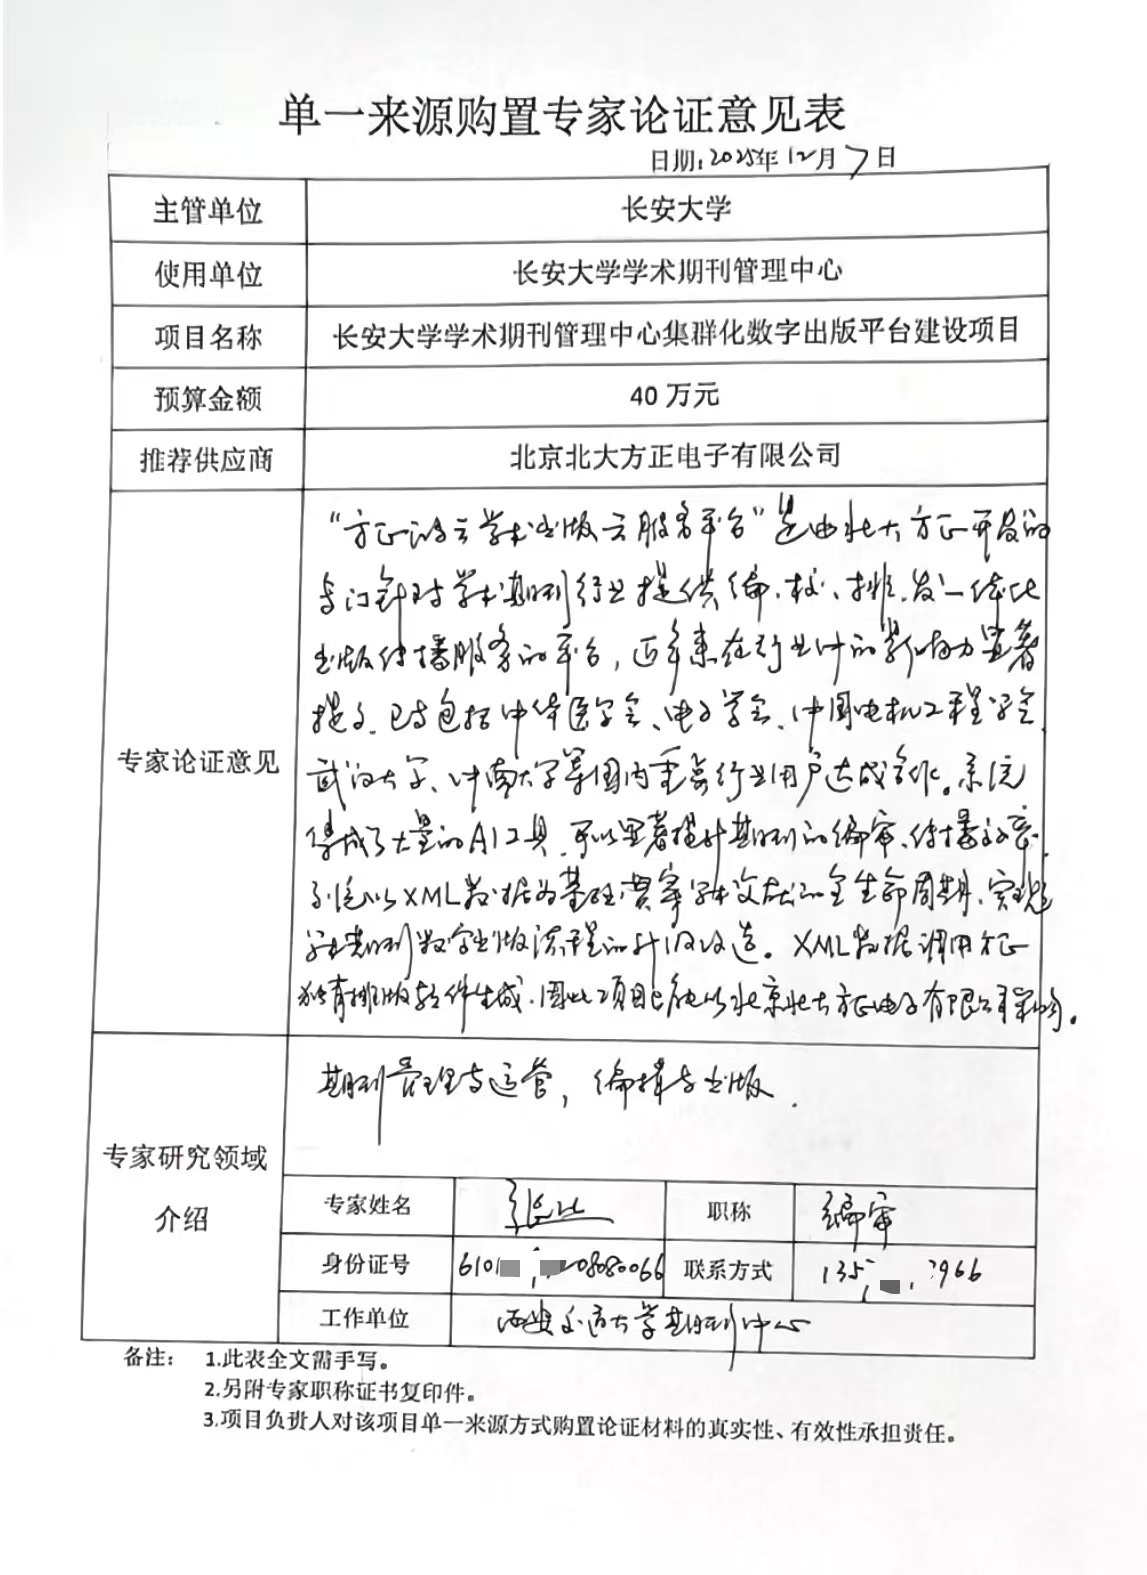 单一来源购置专家论证意见表
日期:2025年12月7日
主管单位 长安大学
使用单位 长安大学学术期刊管理中心
项目名称 长安大学学术期刊管理中心集群化数字出版平台建设项目
预算金额 40万元
推荐供应商 北京北大方正电子有限公司
专家论证意见
“方正鸿云学术出版云服务平台”是由北大方正开发的
专门针对学术期刊行业提供编、校、排、发一体化
出版传播服务的平台，近年来在行业中的影响力显著
提升。已与包括中华医学会、电子学会、中国电机工程学会、
武汉大学、中南大学等国内重要行业用户达成合作。系统
集成了大量的AI工具，可以显著提升期刊的编审、传播效率，
系统以XML数据为基础贯穿学术文献的全生命周期，实现
学术期刊数字出版流程的升级改造。XML数据调用方正
独有排版软件生成，因此项目只能从北京北大方正电子有限公司采购。
专家研究领域
介绍
期刊管理与运营，编辑与出版.
专家姓名 职称 编审
身份证号 6101 08080066 联系方式 135 3966
工作单位 西安交通大学期刊中心
备注： 1.此表全文需手写。
2.另附专家职称证书复印件。
3.项目负责人对该项目单一来源方式购置论证材料的真实性、有效性承担责任。